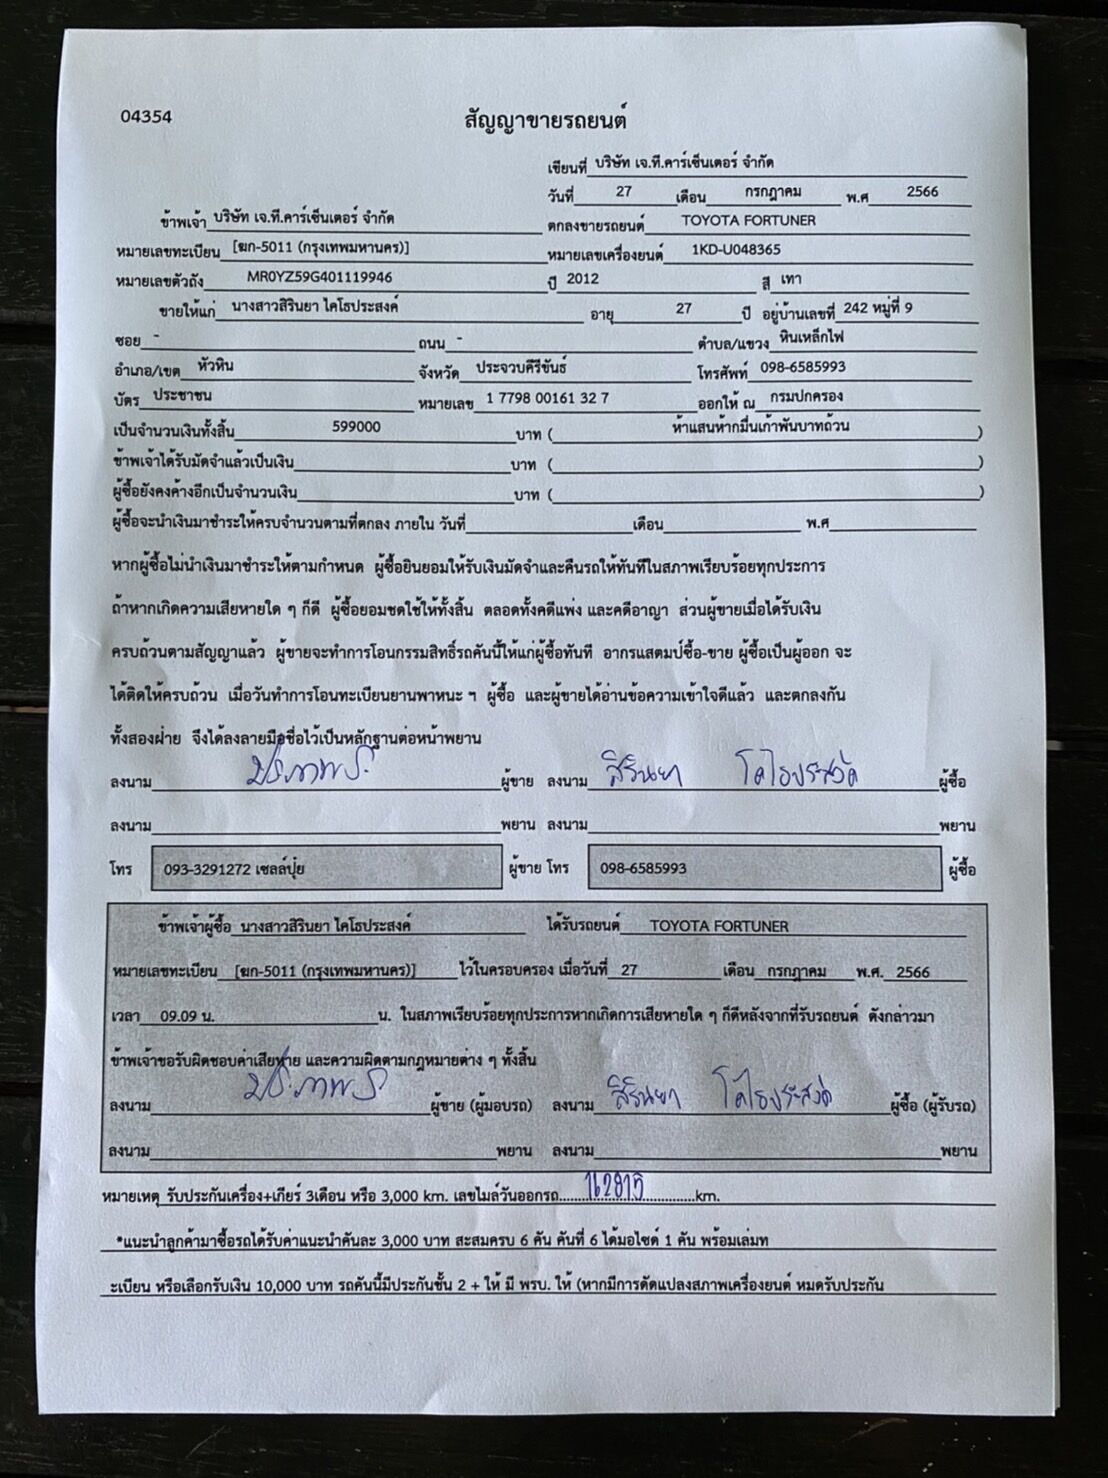 04354
สัญญาขายรถยนต์
เขียนที่ บริษัท เจ.ที.คาร์เซ็นเตอร์ จำกัด
วันที่ 27 เดือน กรกฎาคม พ.ศ 2566
ข้าพเจ้า บริษัท เจ.ที.คาร์เซ็นเตอร์ จำกัด ตกลงขายรถยนต์ TOYOTA FORTUNER
หมายเลขทะเบียน [ฆก-5011 (กรุงเทพมหานคร)] หมายเลขเครื่องยนต์ 1KD-U048365
หมายเลขตัวถัง MR0YZ59G401119946 ปี 2012 สี เทา
ขายให้แก่ นางสาวสิรินยา ไคโธประสงค์ อายุ 27 ปี อยู่บ้านเลขที่ 242 หมู่ที่ 9
ซอย - ถนน - ตำบล/แขวง หินเหล็กไฟ
อำเภอ/เขต หัวหิน จังหวัด ประจวบคีรีขันธ์ โทรศัพท์ 098-6585993
บัตร ประชาชน หมายเลข 1 7798 00161 32 7 ออกให้ ณ กรมปกครอง
เป็นจำนวนเงินทั้งสิ้น 599000 บาท ( ห้าแสนห้ากมื่นเก้าพันบาทถ้วน )
ข้าพเจ้าได้รับมัดจำแล้วเป็นเงิน บาท ( )
ผู้ซื้อยังคงค้างอีกเป็นจำนวนเงิน บาท ( )
ผู้ซื้อจะนำเงินมาชำระให้ครบจำนวนตามที่ตกลง ภายใน วันที่ เดือน พ.ศ
หากผู้ซื้อไม่นำเงินมาชำระให้ตามกำหนด ผู้ซื้อยินยอมให้รับเงินมัดจำและคืนรถให้ทันทีในสภาพเรียบร้อยทุกประการ
ถ้าหากเกิดความเสียหายใด ๆ ก็ดี ผู้ซื้อยอมชดใช้ให้ทั้งสิ้น ตลอดทั้งคดีแพ่ง และคดีอาญา ส่วนผู้ขายเมื่อได้รับเงิน
ครบถ้วนตามสัญญาแล้ว ผู้ขายจะทำการโอนกรรมสิทธิ์รถคันนี้ให้แก่ผู้ซื้อทันที อากรแสตมป์ซื้อ-ขาย ผู้ซื้อเป็นผู้ออก จะ
ได้ติดให้ครบถ้วน เมื่อวันทำการโอนทะเบียนยานพาหนะ ฯ ผู้ซื้อ และผู้ขายได้อ่านข้อความเข้าใจดีแล้ว และตกลงกัน
ทั้งสองฝ่าย จึงได้ลงลายมือชื่อไว้เป็นหลักฐานต่อหน้าพยาน
ลงนาม ผู้ขาย ลงนาม สิรินยา ผู้ซื้อ
ลงนาม พยาน ลงนาม พยาน
โทร 093-3291272 เซลล์ปุ๋ย ผู้ขาย โทร 098-6585993 ผู้ซื้อ
ข้าพเจ้าผู้ซื้อ นางสาวสิรินยา ไคโธประสงค์ ได้รับรถยนต์ TOYOTA FORTUNER
หมายเลขทะเบียน [ฆก-5011 (กรุงเทพมหานคร)] ไว้ในครอบครอง เมื่อวันที่ 27 เดือน กรกฎาคม พ.ศ. 2566
เวลา 09.09 น. น. ในสภาพเรียบร้อยทุกประการหากเกิดการเสียหายใด ๆ ก็ดีหลังจากที่รับรถยนต์ ดังกล่าวมา
ข้าพเจ้าขอรับผิดชอบค่าเสียหาย และความผิดตามกฎหมายต่าง ๆ ทั้งสิ้น
ลงนาม ผู้ขาย (ผู้มอบรถ) ลงนาม สิรินยา ผู้ซื้อ (ผู้รับรถ)
ลงนาม พยาน ลงนาม พยาน
หมายเหตุ รับประกันเครื่อง+เกียร์ 3เดือน หรือ 3,000 km. เลขไมล์วันออกรถ.........162815..................km.
*แนะนำลูกค้ามาซื้อรถได้รับค่าแนะนำคันละ 3,000 บาท สะสมครบ 6 คัน คันที่ 6 ได้มอไซด์ 1 คัน พร้อมเล่มท
ะเบียน หรือเลือกรับเงิน 10,000 บาท รถคันนี้มีประกันชั้น 2 + ให้ มี พรบ. ให้ (หากมีการดัดแปลงสภาพเครื่องยนต์ หมดรับประกัน